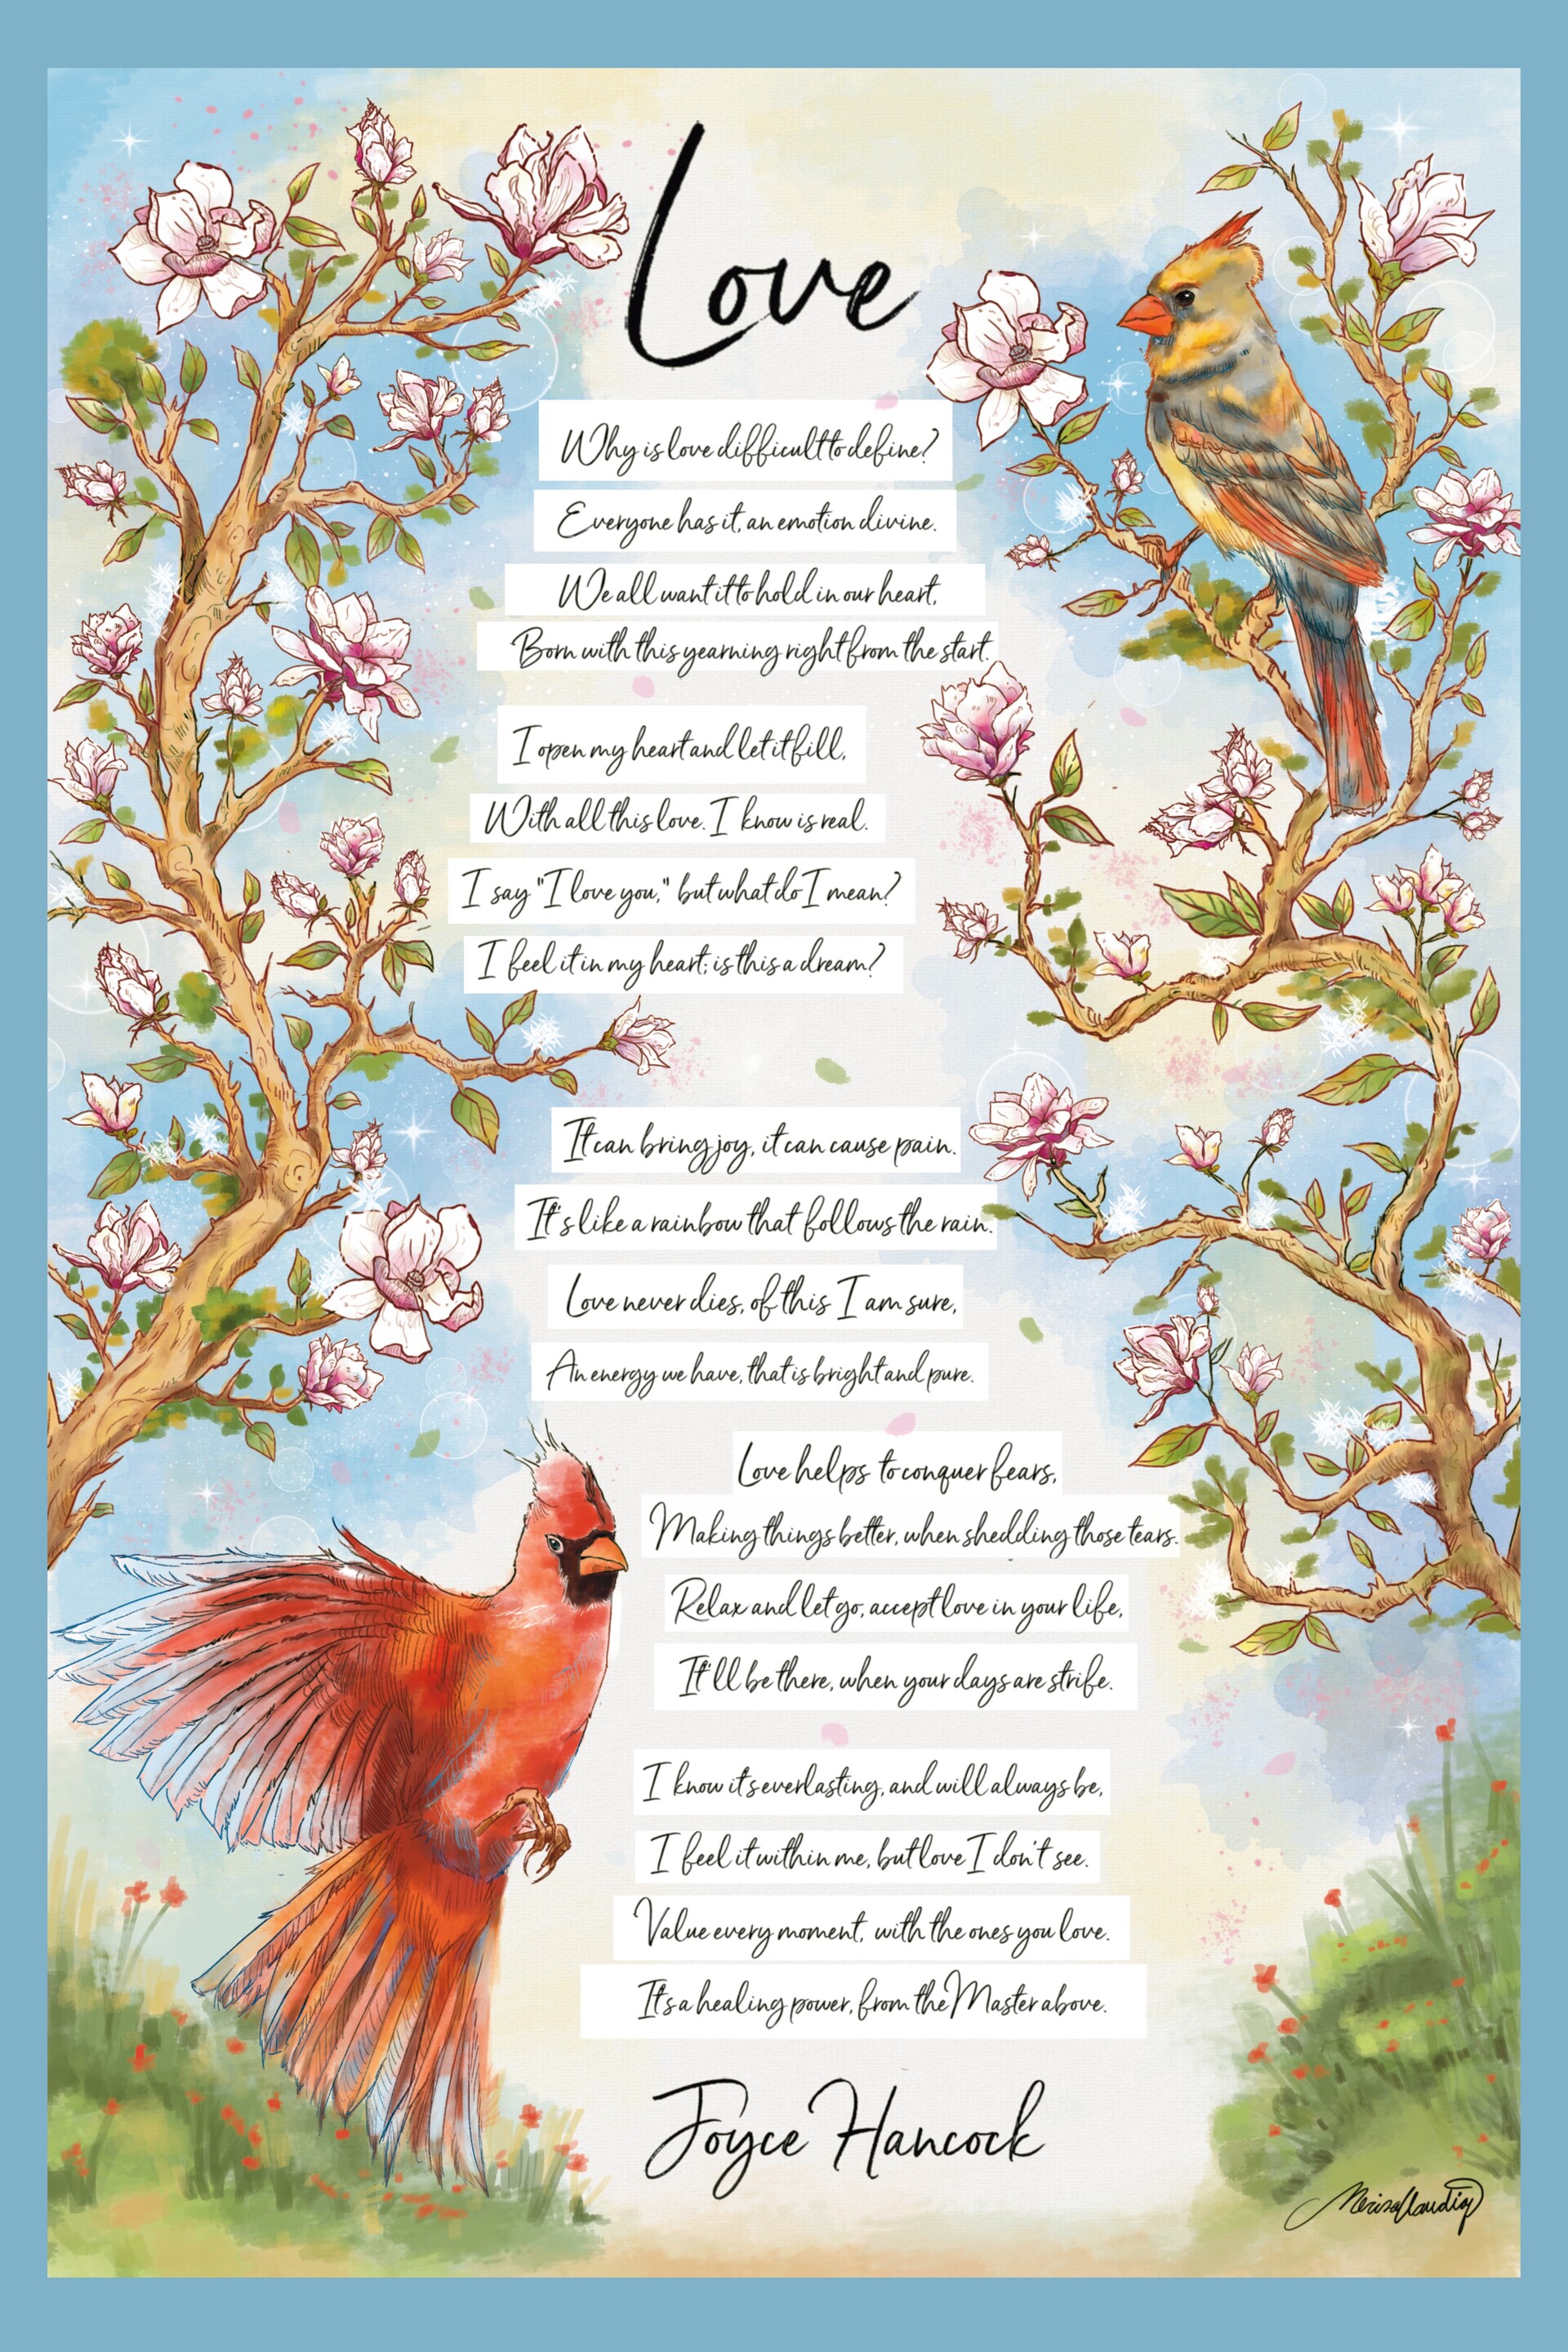 Love
Why is love difficult to define?
Everyone has it, an emotion divine.
We all want it to hold in our heart,
Born with this yearning right from the start.
I open my heart and let it fill,
With all this love. I know is real.
I say "I love you," but what do I mean?
I feel it in my heart; is this a dream?
It can bring joy, it can cause pain.
It's like a rainbow that follows the rain.
Love never dies, of this I am sure,
An energy we have, that is bright and pure.
Love helps to conquer fears,
Making things better, when shedding those tears.
Relax and let go, accept love in your life,
It'll be there, when your days are strife.
I know it's everlasting, and will always be,
I feel it within me, but love I don't see.
Value every moment, with the ones you love.
It's a healing power, from the Master above.
Joyce Hancock